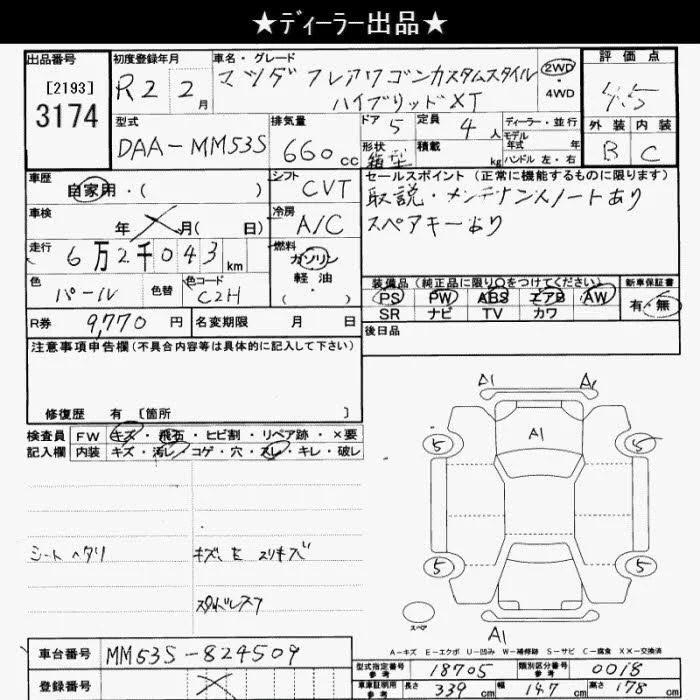 ★ディーラー出品★
出品番号 初度登録年月 車名・グレード 評価点
[2193] R2 2月 マツダ フレアワゴンカスタムスタイル 2WD 4.5
3174 ハイブリッドXT ・4WD
型式 排気量 ドア 5 定員 4人 ディーラー・並行 外装 内装
モデル
DAA-MM53S 660cc 形状 箱型 積載 kg 年式 年 B C
ハンドル 左・右
車歴 自家用・( ) シフト CVT セールスポイント(正常に機能するものに限ります)
取説・メンテナンスノートあり
車検 年 月( 日) 冷房 A/C スペアキーあり
走行 6万2千043km 燃料 ガソリン
軽油
・( )
色 パール 色替 色コード C2H 装備品(純正品に限り○をつけてください) 新車保証書
PS PW ABS エアB AW 有・無
R券 9,770円 名変期限 月 日 SR ナビ TV カワ
後日品
注意事項申告欄(不具合内容等は具体的に記入して下さい)
修復歴 有 〔箇所 〕
検査員 FW キズ・飛石・ヒビ割・リペア跡・×要
記入欄 内装 キズ・汚レ・コゲ・穴・スレ・キレ・破レ
A1 A1
A1
5 5
シートヘタリ キズ、E スリキズ
5 5
スタッドレス7
スペア
A1
A-キズ E-エクボ U-凹み W-補修跡 S-サビ C-腐食 XX-交換済
車台番号 MM53S-824509
型式指定番号参考 18705 類別区分番号参考 0018
登録番号
車庫証明用参考 長さ 339cm 幅 147cm 高さ 178cm